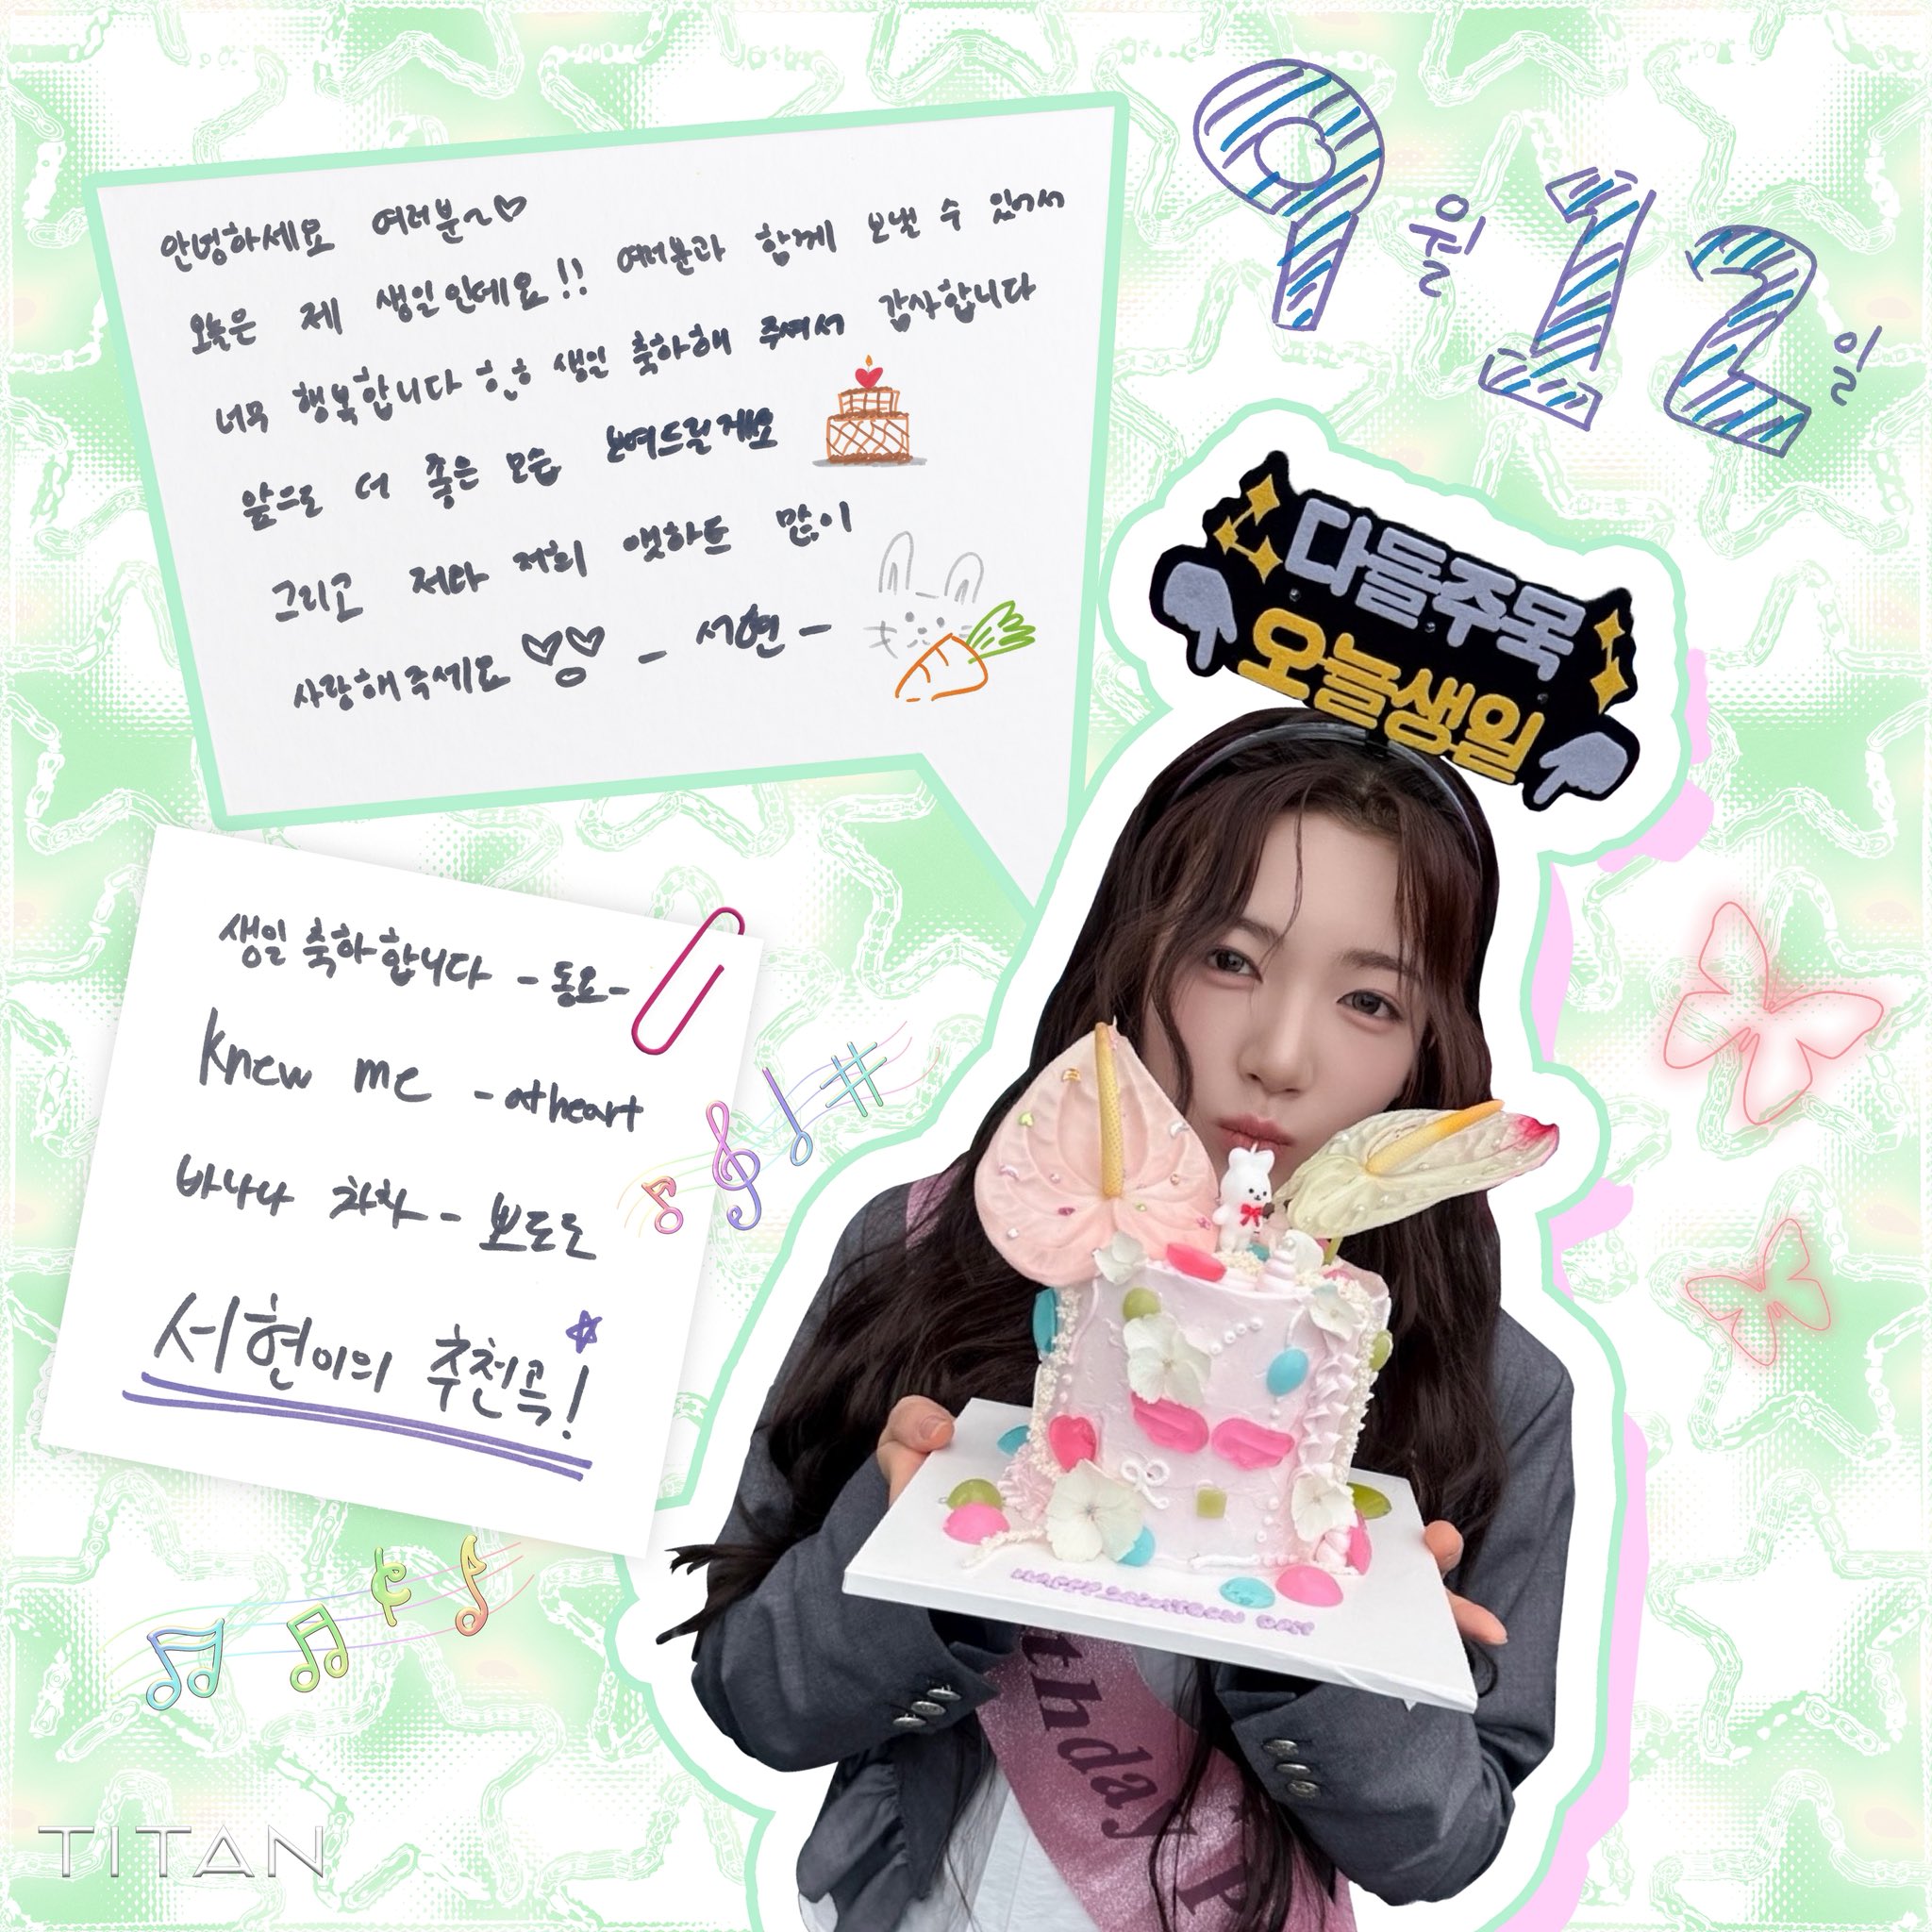 9월 12일
안녕하세요 여러분~♡
오늘은 제 생일인데요!! 여러분과 함께 보낼 수 있어서
너무 행복합니다 ㅎㅎ 생일 축하해 주셔서 감사합니다
앞으로 더 좋은 모습 보여드릴게요
그리고 저다 저희 앳하트 많이
사랑해주세요 ♡♡ - 서현 -
다들주목
오늘생일
생일 축하 합니다 - 동요 -
Knew me - at heart
바나나 차차 - 뽀로로
서현이의 추천곡!
thday P
TITAN